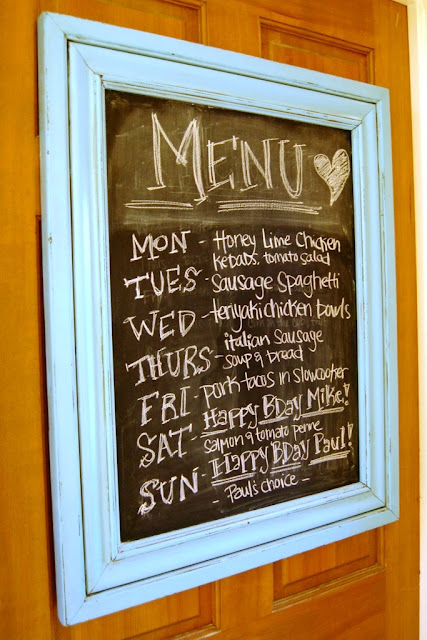 MENU
MON - Honey Lime Chicken
kebabs, tomato salad
TUES - Sausage Spaghetti
WED - teriyaki chicken bowls
THURS - italian sausage
soup & bread
FRI - pork tacos in slowcooker
SAT - Happy BDay Mike!
Salmon & tomato penne
SUN - Happy BDay Paul!
- Paul's choice -